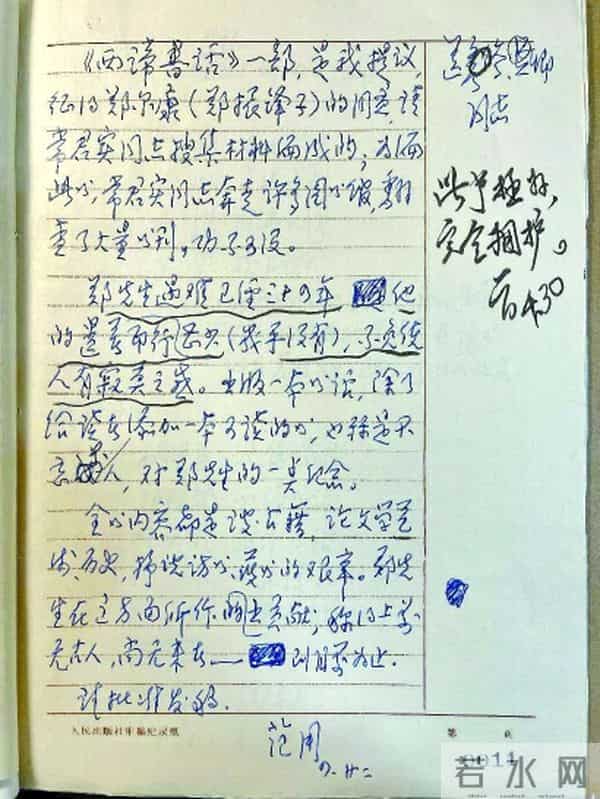 《西谛书话》一部，是我提议，
征得郑尔康（郑振铎子）的同意，请
常君实同志搜集材料而成的；为编
此书，常君实同志奔走许多图书馆，翻
查了大量书刊，功不可没。
郑先生遇难已经二十四年 他
的遗著而行还少（我手没有），不免使
人有寂寞之感。出版一本书话，除了
给读者添加一本可读的书，也算是不
忘 人，对郑先生的一点纪念。
全书内容都是谈古籍，论文学艺
术、历史，抒谈访书、藏书的艰辛。郑先
生在这方面所作出的贡献，称得上前
无古人，尚无来者——到目前为止。
请批准发稿。
范用
人民出版社审稿纪录纸
第 页
0014
同志
此书极好，
完全拥护。
4.30
若水网